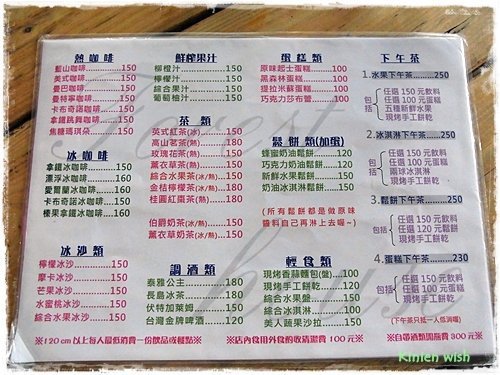 熱咖啡
藍山咖啡.........150
美式咖啡.........150
曼巴咖啡.........150
曼特寧咖啡.......150
卡布奇諾咖啡.....150
拿鐵跳舞咖啡.....150
焦糖瑪琪朵.......150
冰咖啡
拿鐵冰咖啡.......150
漂浮冰咖啡.......150
愛爾蘭冰咖啡.....160
卡布奇諾冰咖啡...150
榛果拿鐵冰咖啡...160
冰沙類
檸檬冰沙.........150
摩卡冰沙.........150
芒果冰沙.........150
水蜜桃冰沙.......150
綜合水果冰沙.....150
鮮榨果汁
柳橙汁...........150
檸檬汁...........150
綜合果汁.........150
葡萄柚汁.........150
茶類
英式紅茶(冰/熱)...150
高山茗茶(熱)......150
玫瑰花茶(熱)......150
薰衣草茶(熱)......150
綜合水果茶(冰/熱).150
金桔檸檬茶(冰/熱).150
桂圓紅棗茶(熱)....150
伯爵奶茶(冰/熱)...150
薰衣草奶茶(冰/熱).150
調酒類
泰雅公主.........180
長島冰茶.........180
伏特加萊姆.......150
台灣金牌啤酒.....120
蛋糕類
原味起士蛋糕.....100
黑森林蛋糕.......100
提拉米蘇蛋糕.....100
巧克力莎布蕾.....100
鬆餅類(加蛋)
蜂蜜奶油鬆餅.....120
巧克力奶油鬆餅...120
新鮮水果鬆餅.....150
奶油冰淇淋鬆餅...150
(所有鬆餅都是做原味
醬料自己再淋上去喔~)
輕食類
現烤香蒜麵包(盤)..100
現烤手工餅乾.....120
綜合水果盤.......150
綜合冰淇淋.......100
美人蔬果沙拉.....150
下午茶
1.水果下午茶......250
包括
任選 150 元飲料
任選 100 元蛋糕
五種新鮮水果
現烤手工餅乾
2.冰淇淋下午茶....250
包括
任選 150 元飲料
任選 100 元蛋糕
兩球冰淇淋
現烤手工餅乾
3.鬆餅下午茶......250
包括
任選 150 元飲料
任選 120 元鬆餅
現烤手工餅乾
4.蛋糕下午茶......230
包括
任選 150 元飲料
任選 100 元蛋糕
現烤手工餅乾
(下午茶只抵一人低消喔)
※120 cm 以上每人最低消費一份飲品或餐點※
※店內食用外食酌收清潔費 100 元※
※自帶酒類開瓶費 300 元※
Kinien wish